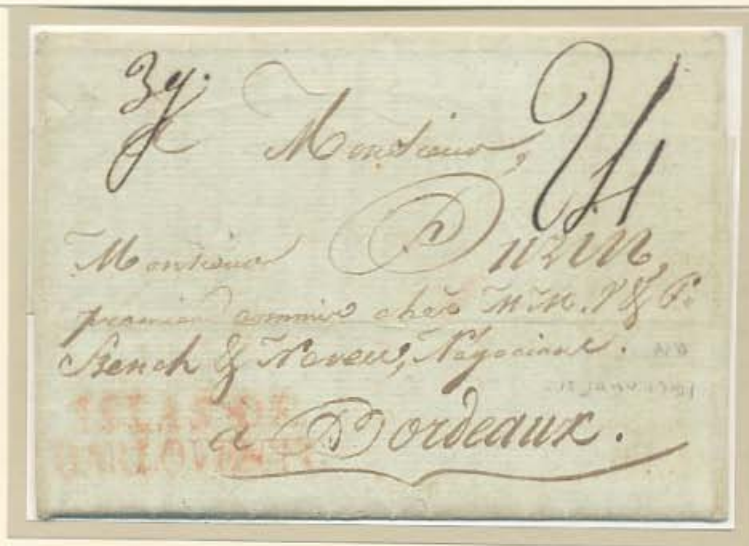 3 g.
24
Monsieur,
Monsieur Duzin,
premier commis chez MM. P & P.
French & Neveu, Négociant.
à Bordeaux.